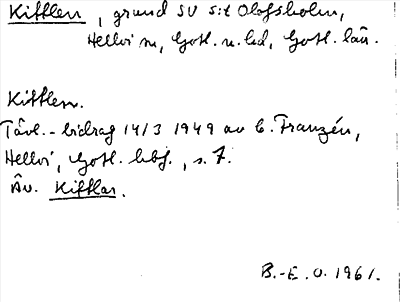 Kifflen, grund SV S:t Olofsholm,
Hellvi sn, Gotl. n. hd, Gotl. län.
Kifflen.
Tävl.-bidrag 14/3 1949 av G. Franzén,
Hellvi, Gotl. hbf., s. 7.
Äv. Kifflar.
B.-E. O. 1961.